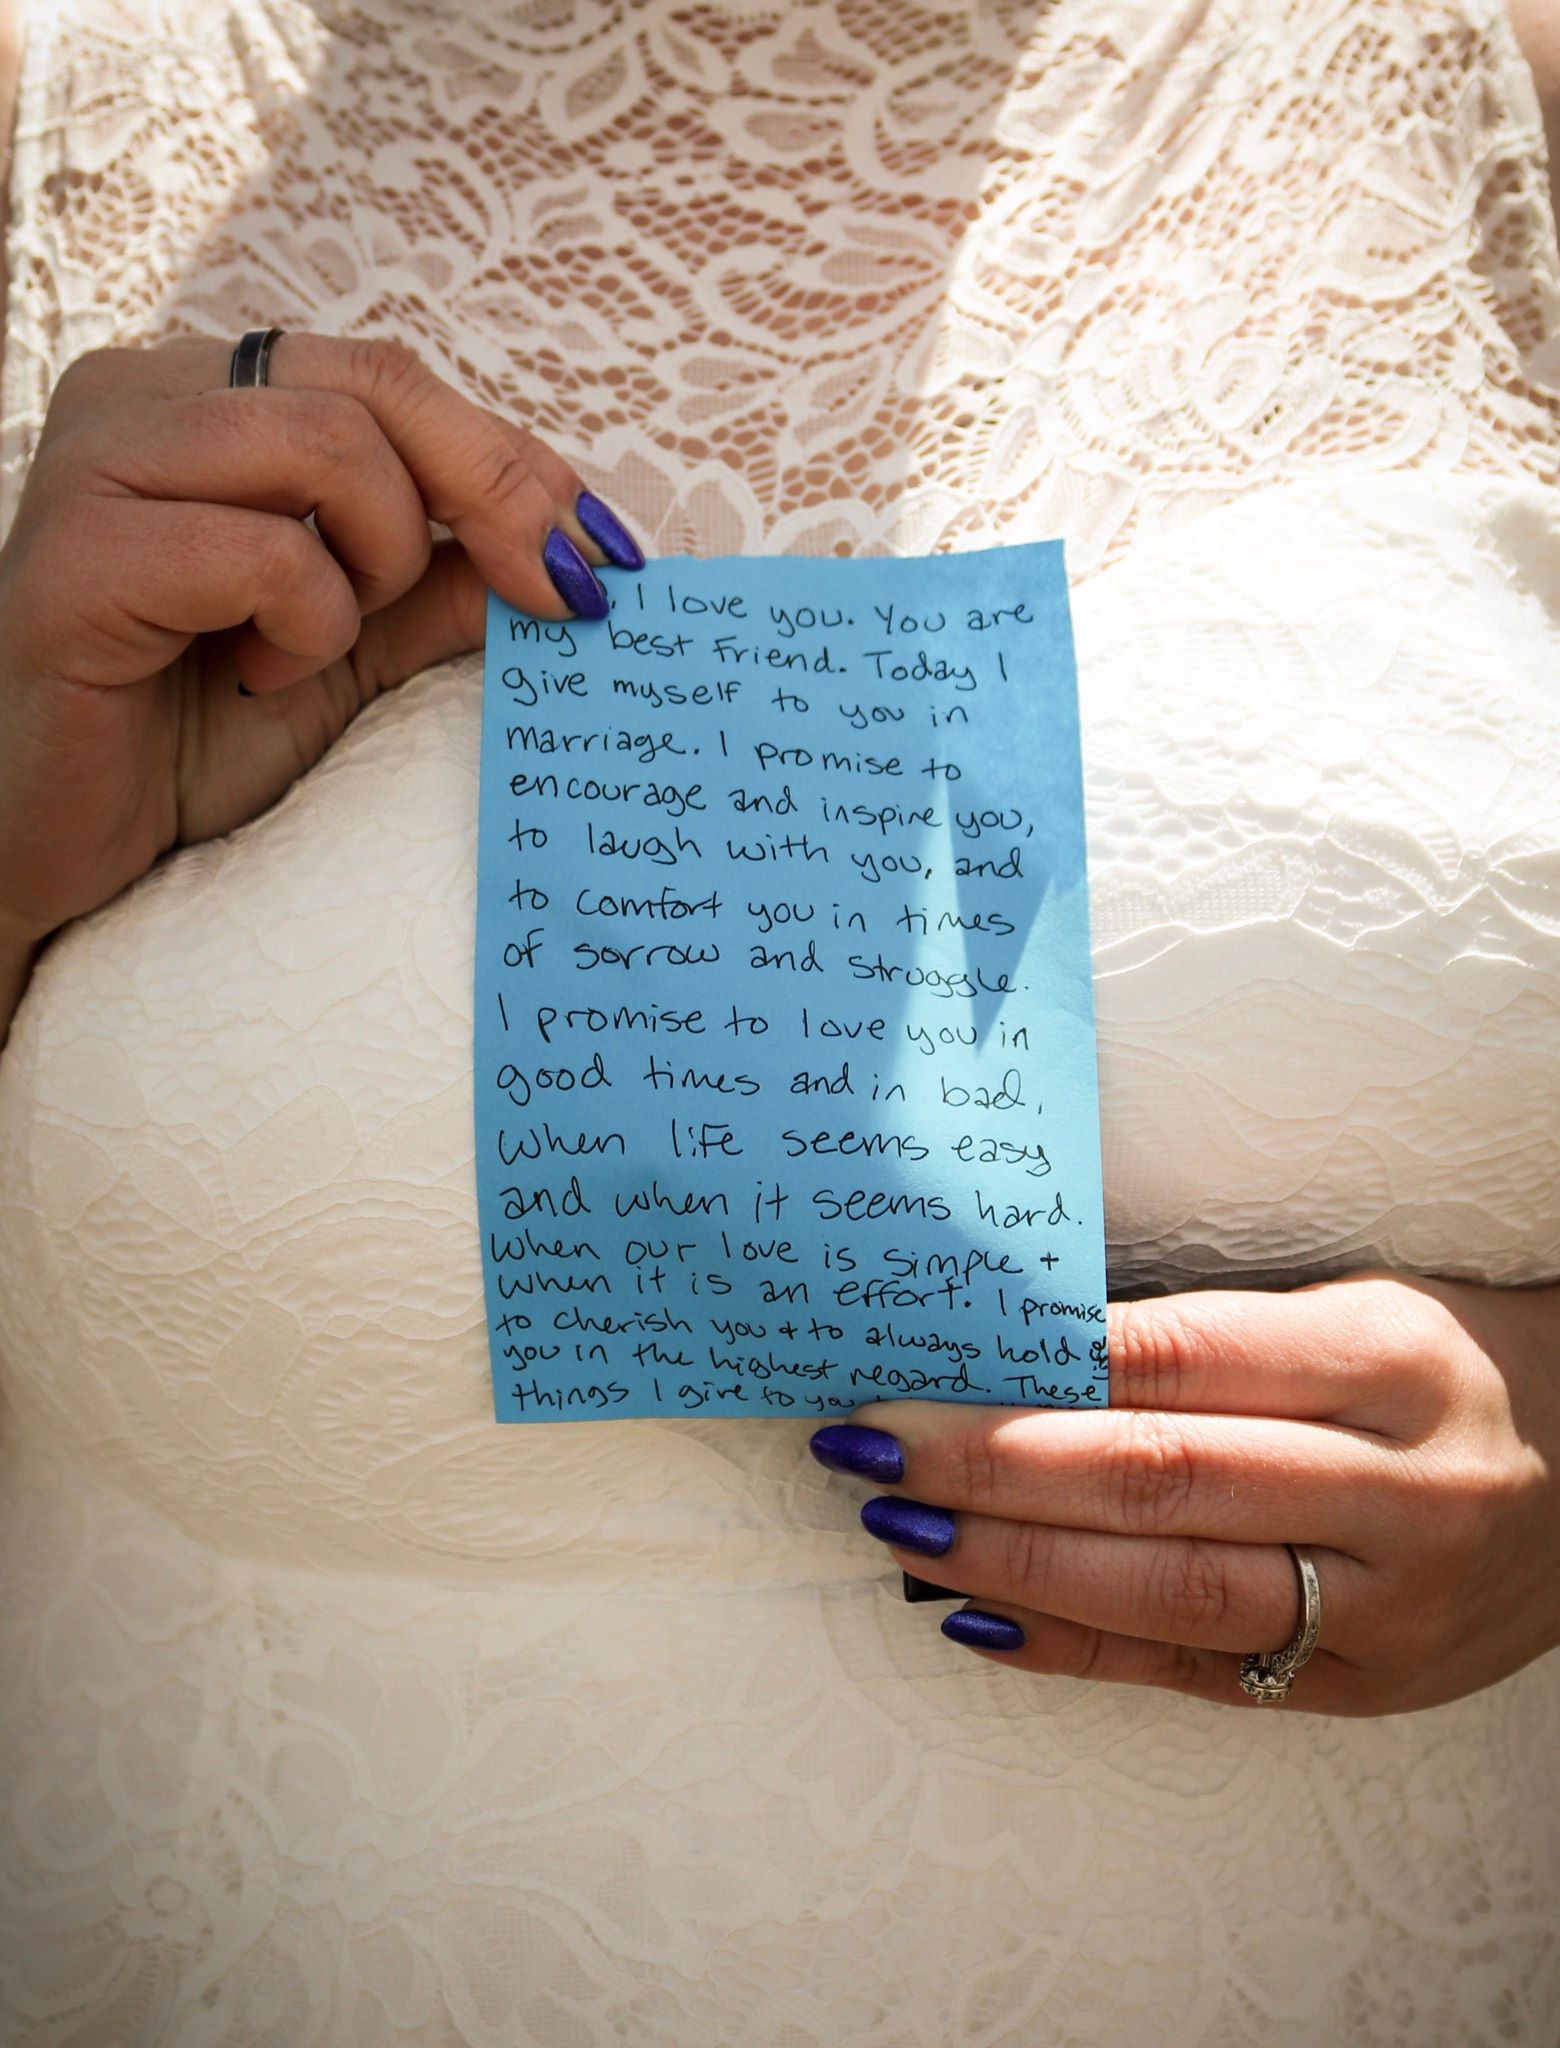 , I love you. You are
my best friend. Today I
give myself to you in
marriage. I promise to
encourage and inspire you,
to laugh with you, and
to comfort you in times
of sorrow and struggle.
I promise to love you in
good times and in bad,
when life seems easy
and when it seems hard.
When our love is simple +
when it is an effort. I promise
to cherish you + to always hold
you in the highest regard. These
things I give to you